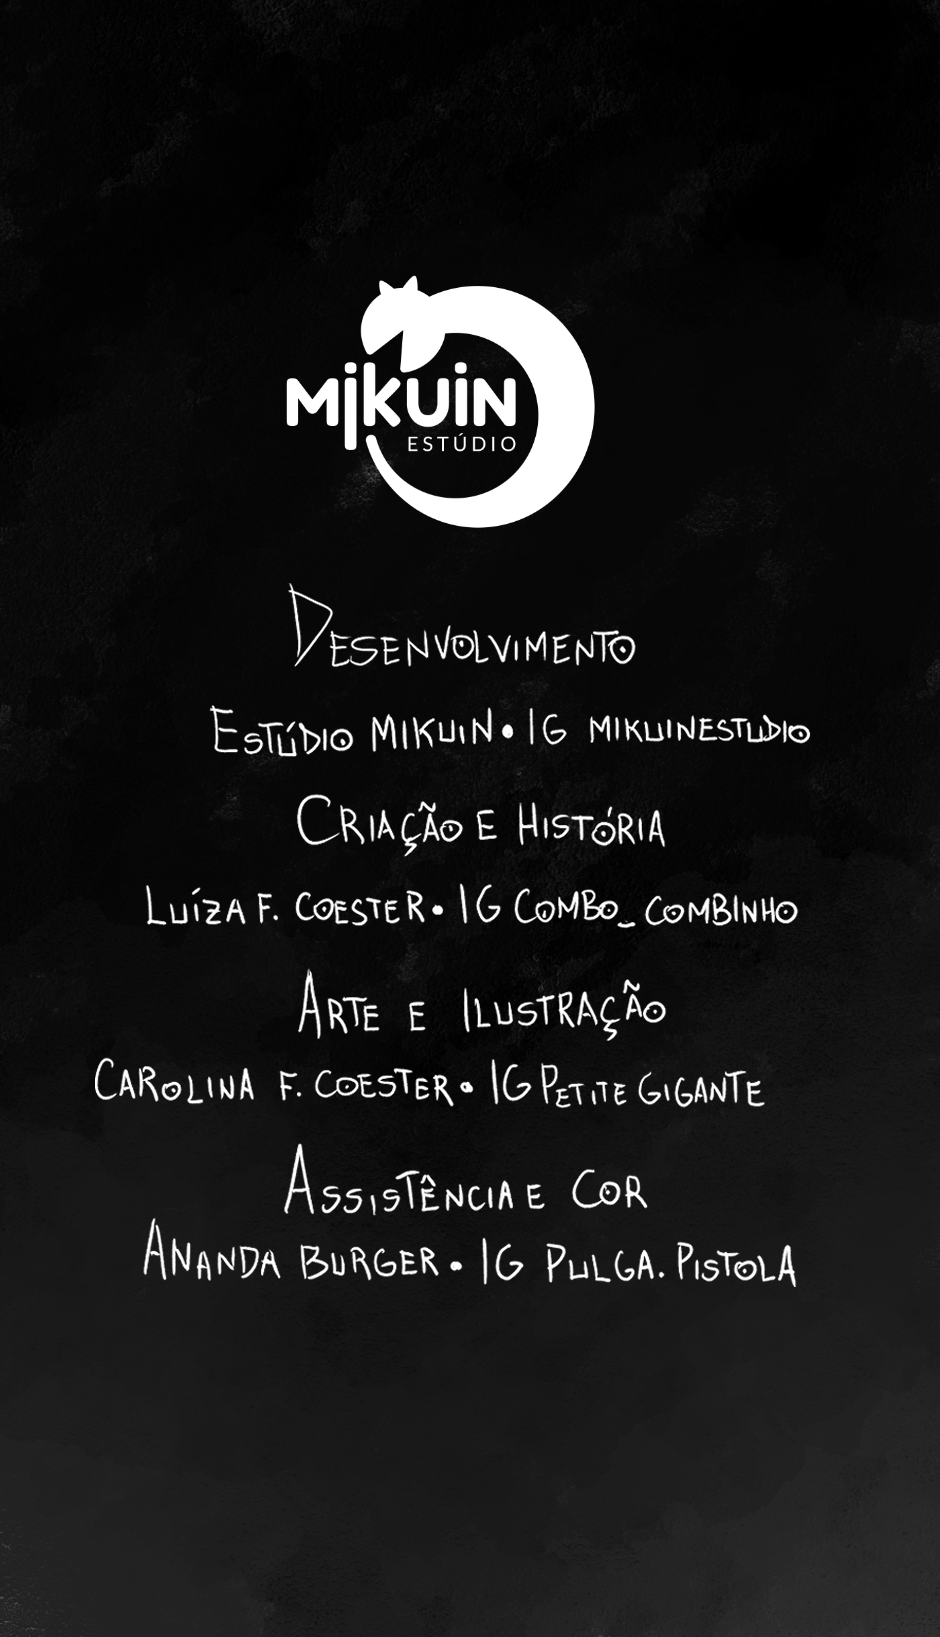 MIKUIN
ESTÚDIO
DESENVOLVIMENTO
ESTÚDIO MIKUIN • IG MIKUINESTUDIO
CRIAÇÃO E HISTÓRIA
LUÍZA F. COESTER • IG COMBO_COMBINHO
ARTE E ILUSTRAÇÃO
CAROLINA F. COESTER • IG PETITE GIGANTE
ASSISTÊNCIA E COR
ANANDA BURGER • IG PULGA.PISTOLA